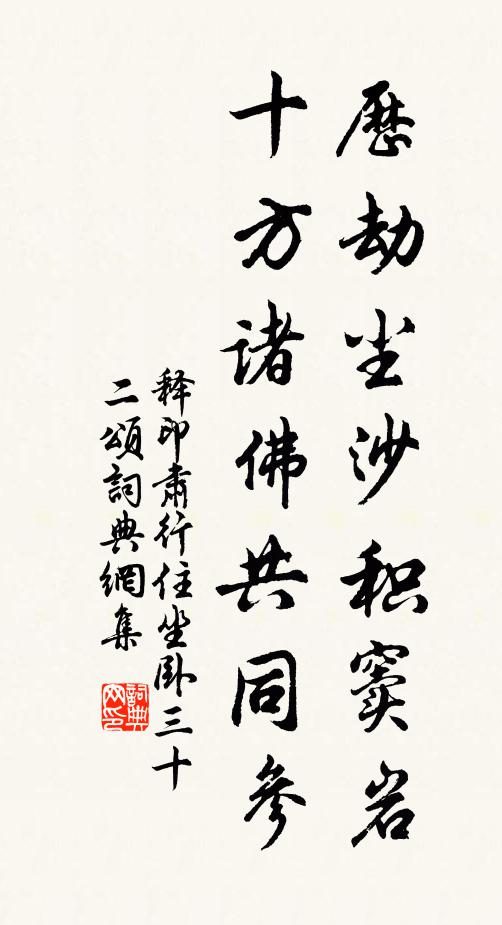 歷劫尘沙积窦岩
十方诸佛共同参
释印肃行住坐卧三十
二頌詞典網集
詞典网印